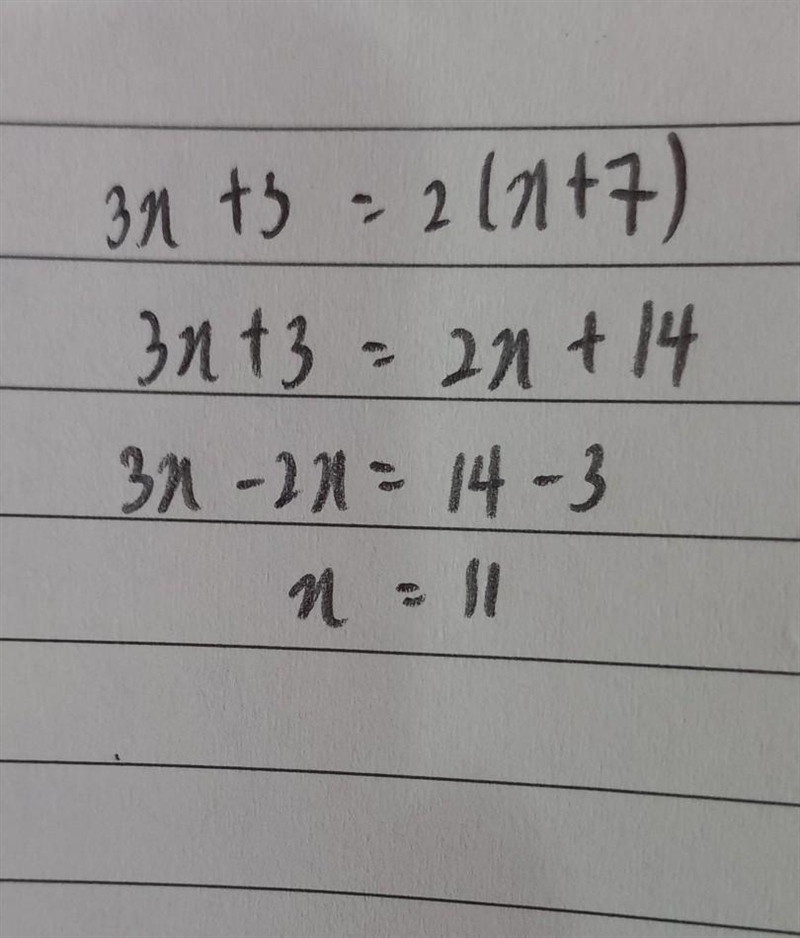 3x + 3 = 2(x+7)
3x + 3 = 2x + 14
3x - 2x = 14 - 3
x = 11